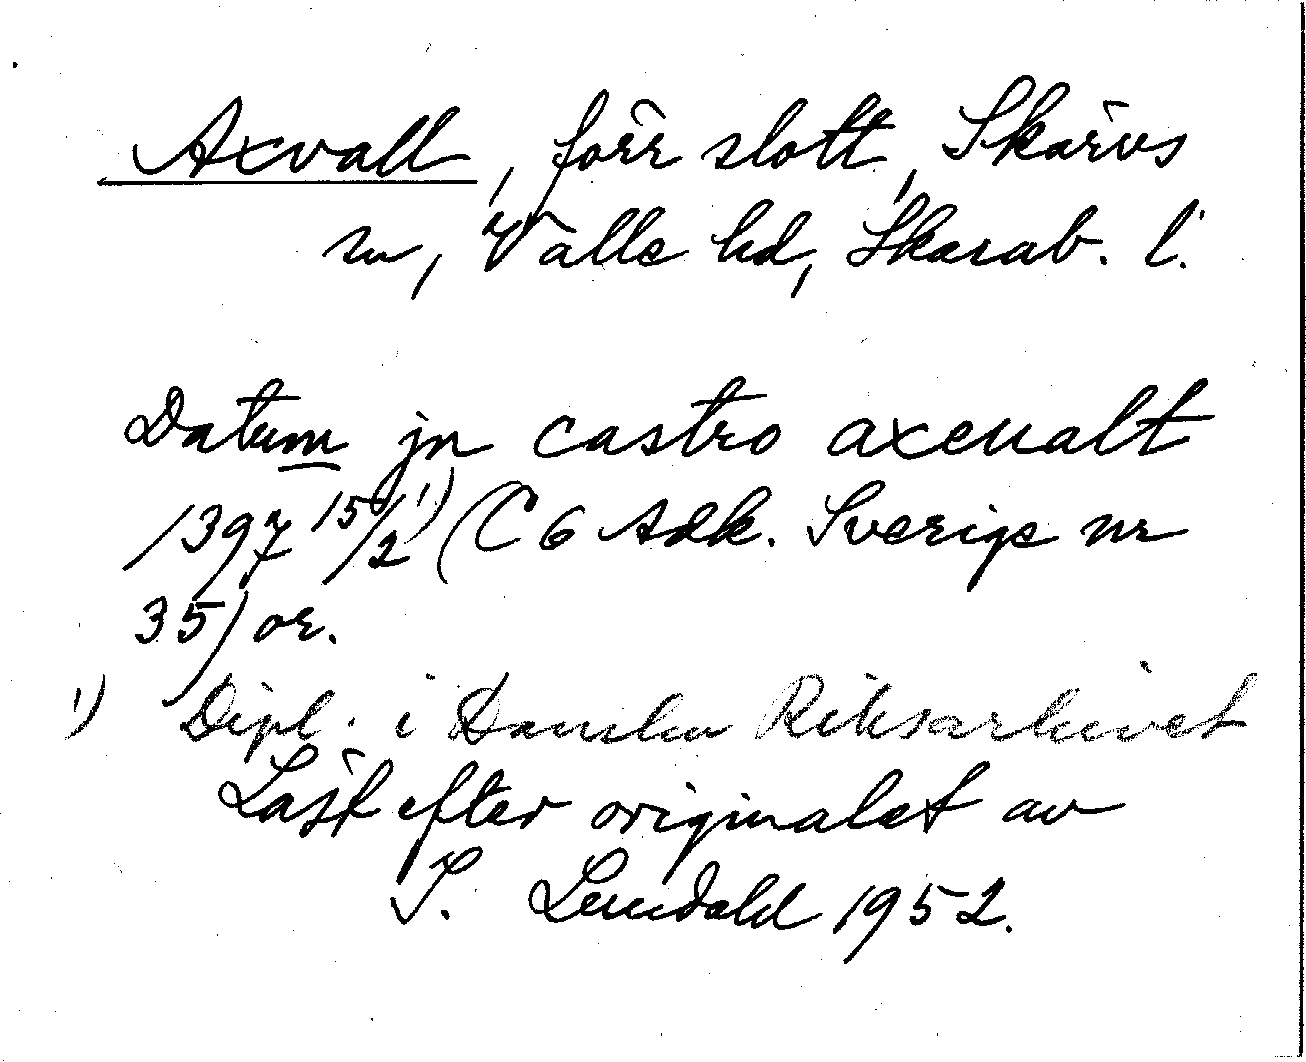 Axvall, förr slott, Skärvs
sn, Valle hd, Skarab. l.
Datum jn castro axeualt
1397 15/2 1) (C 6 Adk. Sverige nr
35) or.
1) Dipl. i Danska Riksarkivet
Läst efter originalet av
I. Lundahl 1952.